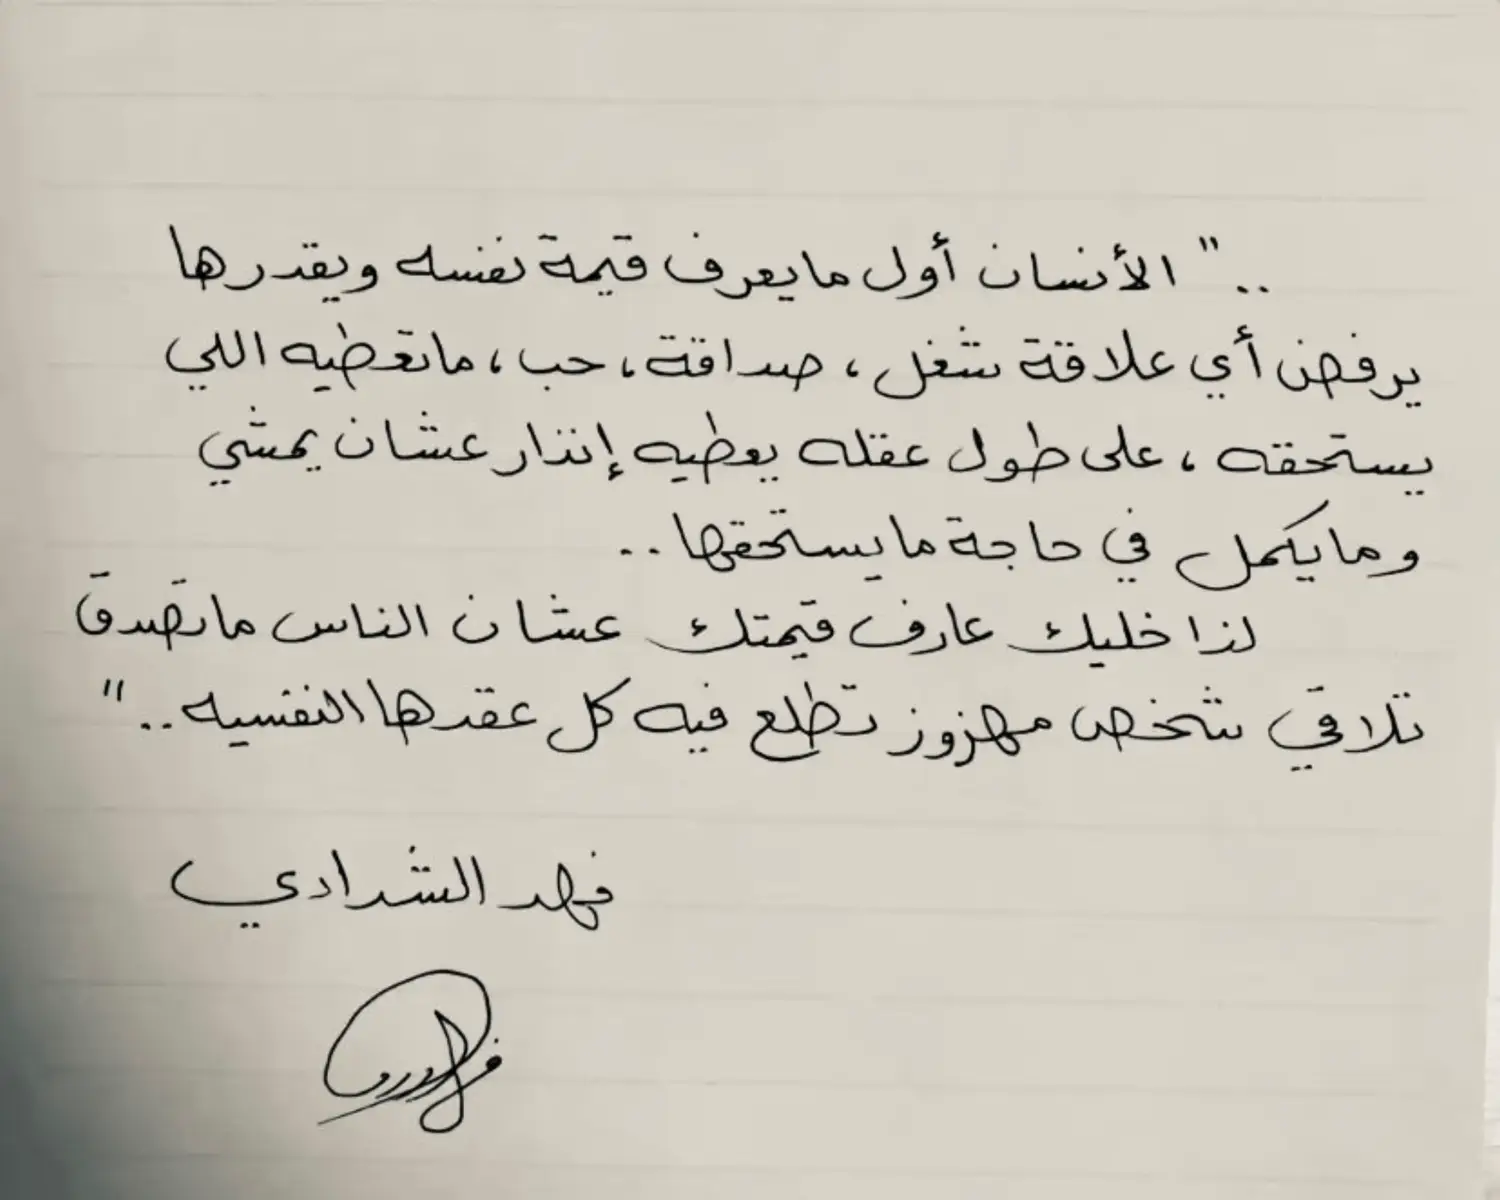 .." الأنسان أول مايعرف قيمة نفسه ويقدرها
يرفض أي علاقة شغل ، صداقة ، حب ، ماتعطيه اللي
يستحقه ، على طول عقله يعطيه إنذار عشان يمشي
ومايكمل في حاجة مايستحقها ..
لذا خليك عارف قيمتك عشان الناس ماتصدق
تلاقي شخص مهزوز تطلع فيه كل عقدها النفسيه .. "
فهد الشدادي